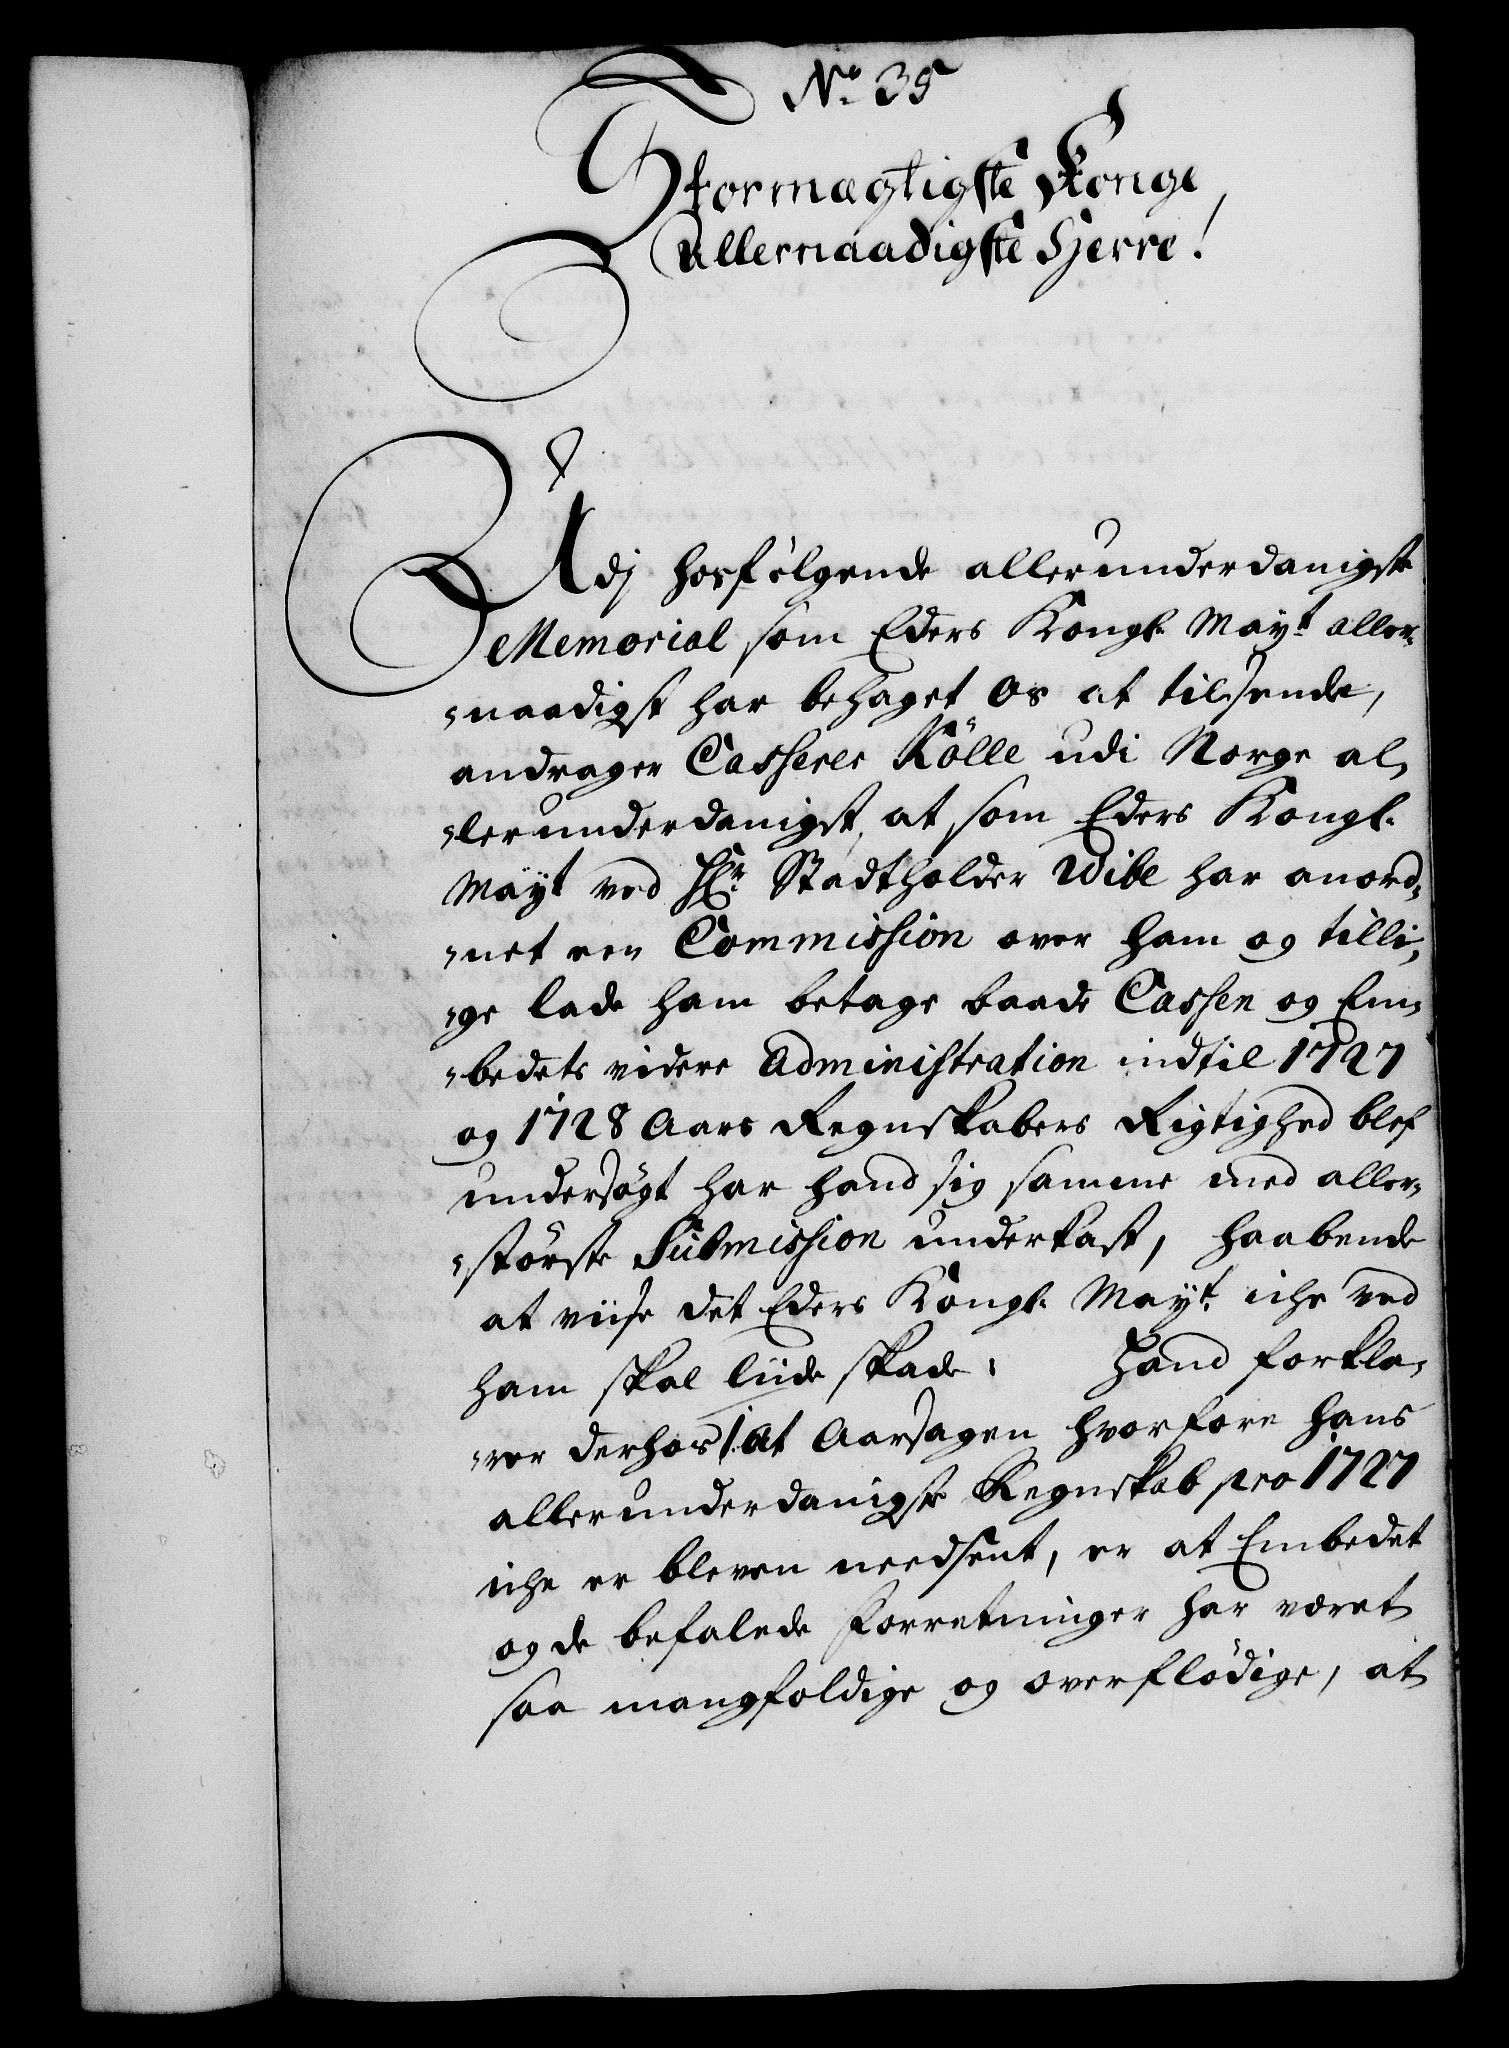 No 35
Stormægtigste Konge,
Allernaadigste Herre!
Udj hosfølgende allerunderdanigste
Memorial som Eders Kongl. Mayt. aller-
-naadigst har behaget os at tilsende,
andrager Casserer Kölle udi Norge al-
-lerunderdanigst, at som Eders Kongl.
Mayt ved Hr. Stadtholder Wibe har anord-
-net een Commission over ham og tilli-
-ge lade ham betage baade Cassen og Em-
-bedets videre Administration indtil 1727
og 1728 Aars Regnskabers Rigtighed blef
undersøgt har hand sig samme med aller-
-største Submission underkast, haabende
at viise det Eders Kongl. Mayt. iche ved
ham skal liide skade: Hand forkla-
-rer derhos 1. At Aarsagen hvorfore hans
allerunderdanigste Regnskab pro 1727
iche er bleven needsent, er at Embedet
og de befalede Forretninger har været
saa mangfoldige og overflödige, at